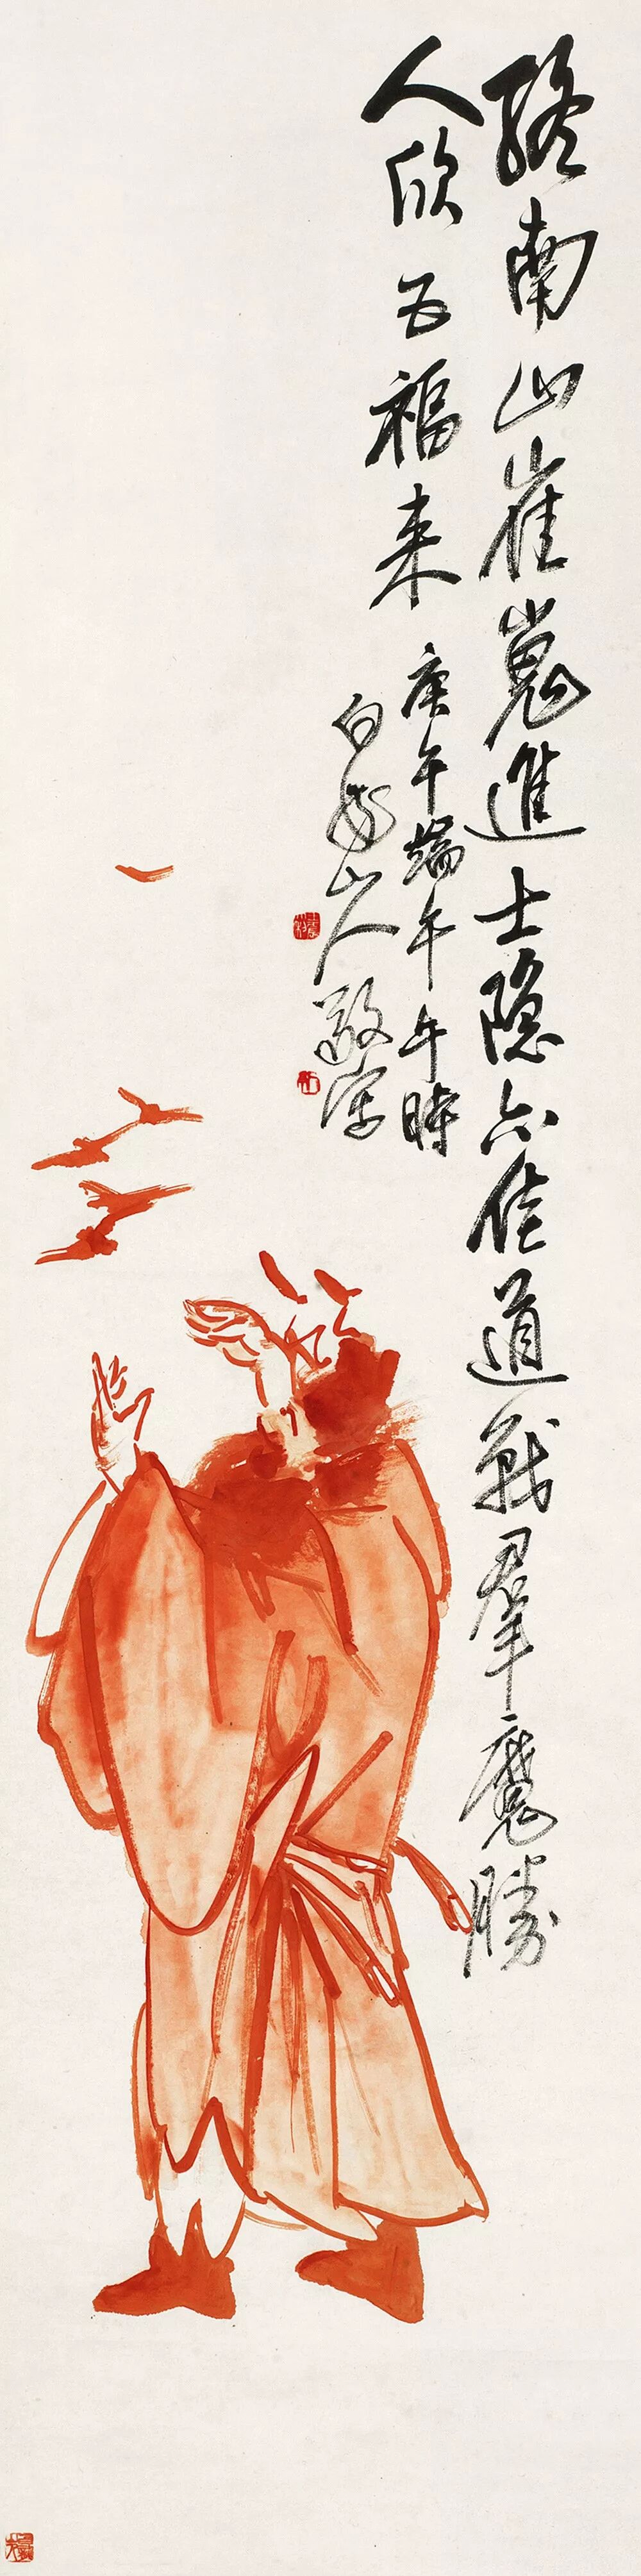 終南山崔嵬進士隱亦佳道戰羣魔勝
人欣五福来
庚午端午午時
白龍山人敬寫